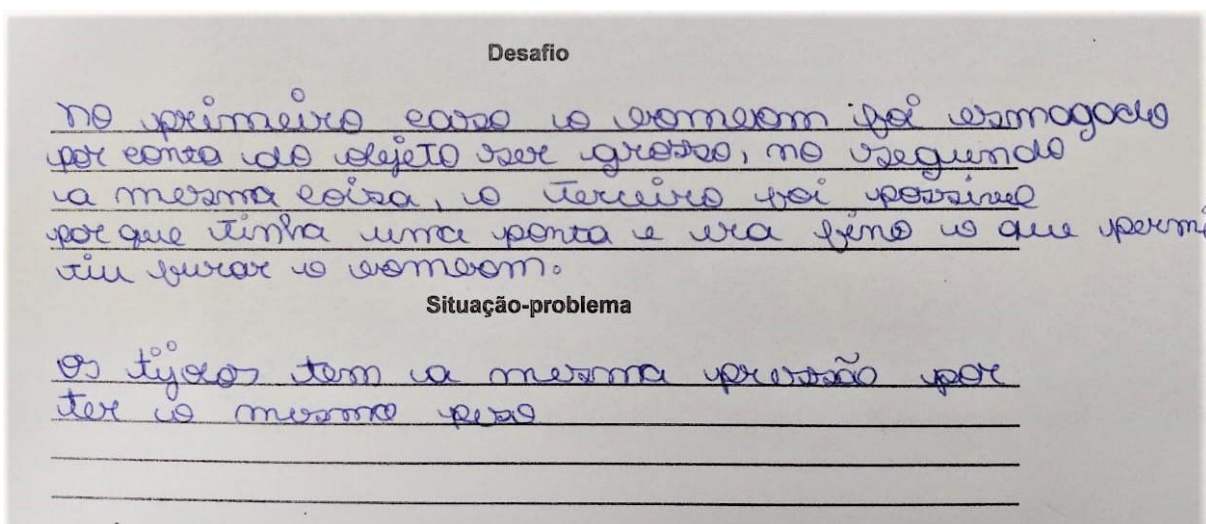 Desafio
no primeiro caso o bombom foi esmagado
por conta do objeto ser grosso, no segundo
a mesma coisa, o terceiro foi possivel
por que tinha uma ponta e era fino o que permi
tiu furar o bombom.
Situação-problema
os tijolos tem a mesma pressão por
ter o mesmo peso